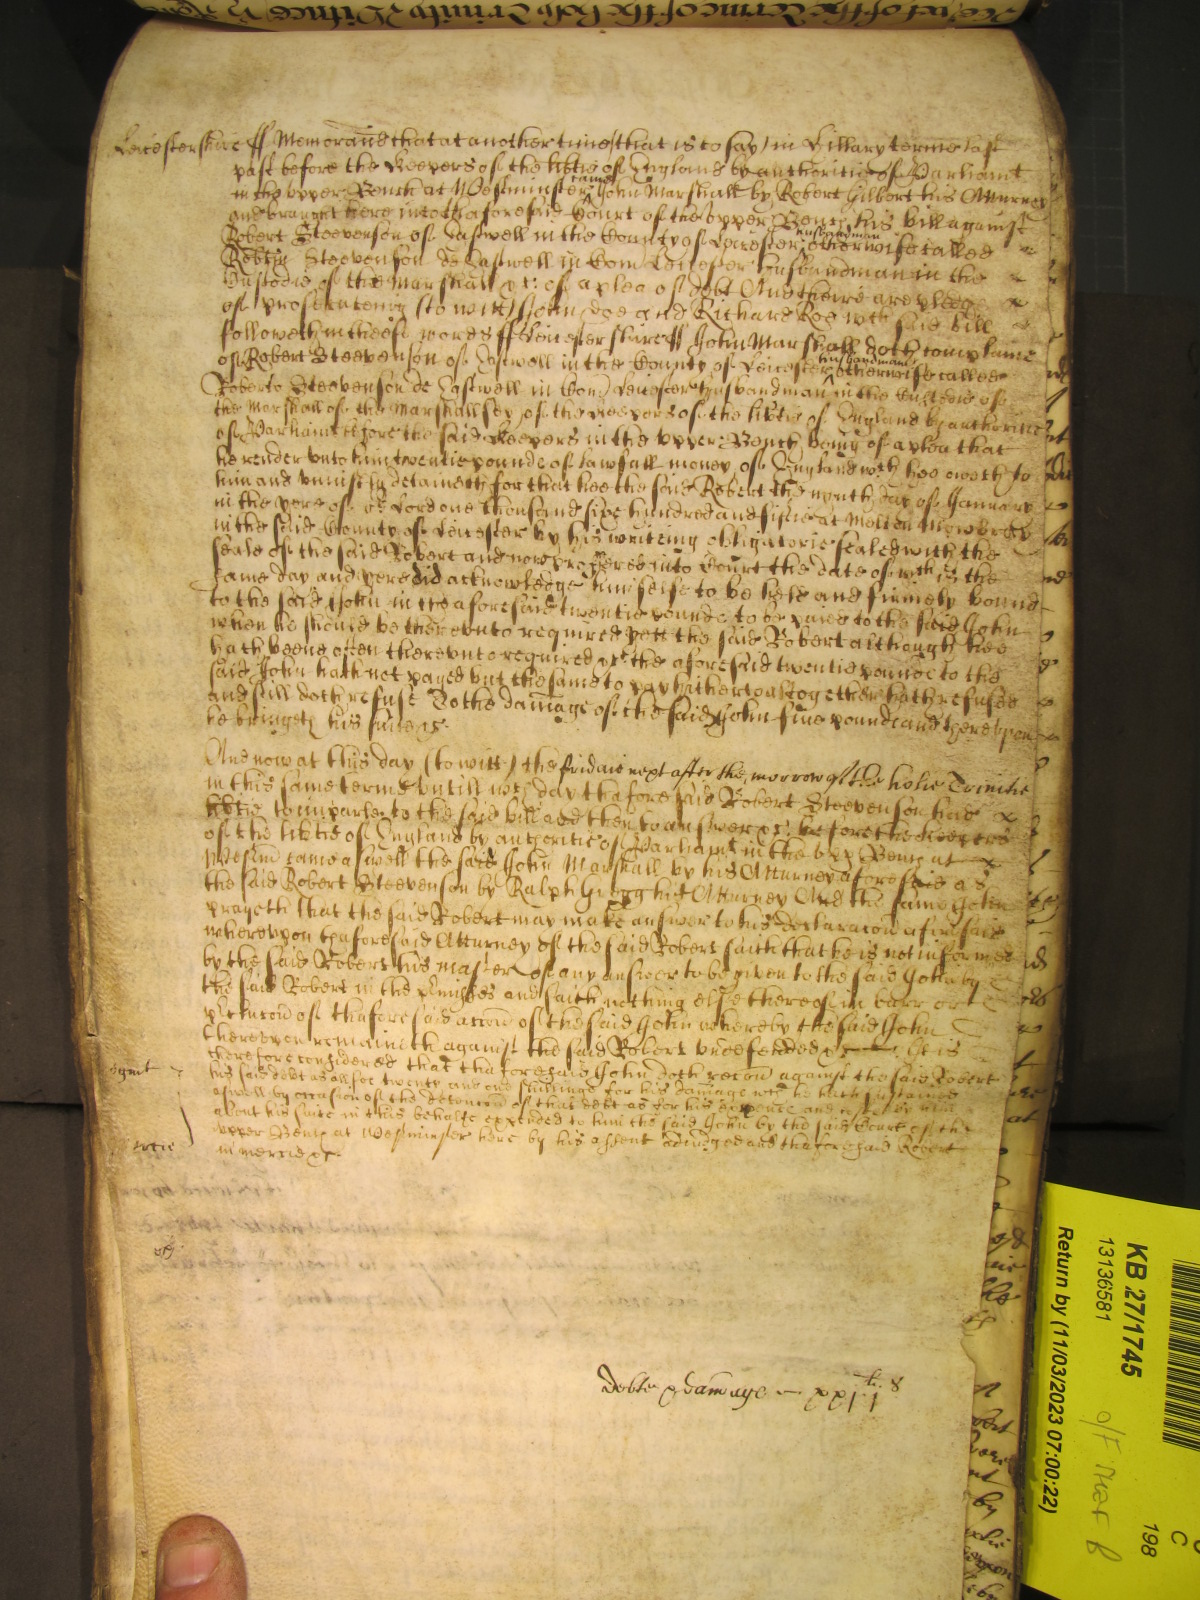 Leicestershire ss Memorand that at another time that is to say in Hillary terme last
past before the Keepers of the libtie of England by authoritie of Parliamt
in the upper Bench at Westminster came John Marshall by Robert Gilbert his Atturney
and brought here into thaforesaid Court of the upper Bench his bill against
Robert Steevenson of Eastwell in the County of Leicester husbandman otherwise called
Robtu Steevenson de Eastwell in Com Leicester husbandman in the
Custodie of the Marshall &c of a plea of debt And there are pledges
of prosecuteing (to witt) John Doe and Richard Roe wch said bill
followeth in theis words ss Leicestershire ss John Marshall doth complaine
of Robert Steevenson of Eastwell in the County of Leicester husbandman otherwise called
Roberto Steevenson de Eastwell in Com Leicester husbandman in the Custodie of
the Marshall of the Marshallsey of the Keepers of the libtie of England by authoritie
of Parliamt before the said Keepers in the upper Bench being of a plea that
he render unto him twentie pounds of lawfull money of England wch hee oweth to
him and uniustly detaineth for that hee the said Robert the nynth day of January
in the yere of or Lord one thousand sixe hundred and fiftie at Melton Mowbrey
in the said County of Leicester by his writeing obligatorie sealed with the
seale of the said Robert and now proffered into Court the date of wch is the
same day and yere did acknowledge him selfe to be held and firmely bound
to the said John in the aforesaid twentie pounds to be paid to the said John
when he should be thereunto required yett the said Robert although hee
hath beene often thereunto required &c the aforesaid twentie pounds to the
said John hath not payed but the same to pay hitherto altogether hath refused
and still doth refuse To the damage of the said John five pounds and thereupon
he bringeth his suite &c
And now at this day (to witt) the fridaie next after the morrow of the holie Trinitie
in this same terme untill wch day thaforesaid Robert Steevenson had
libtie to imparle to the said bill and then to answer &c before the Keepers
of the libtie of England by authoritie of Parliamt in the upp Bench at
Westm came aswell the said John Marshall by his Atturney aforesaid as
the said Robert Steevenson by Ralph Gregg his Atturney And the same John
prayeth that the said Robert may make answer to his declaracon aforesaid
whereupon thaforesaid Atturney of the said Robert saith that he is not informed
by the said Robert his master of any answer to be given to the said John by
the said Robert in the pmisses and saith nothing else thereof in barr or
pclusion of thaforesaid accon of the said John whereby the said John
thereupon remaineth against the said Robert undefended &c It is
therefore considered that thaforesaid John doth recov against the said Robert
his said debt as also twenty and one shillings for his damage wch he hath sustained
aswell by occasion of the detencon of that debt as for his expence and costs by him
about his suite in this behalfe expended to him the said John by the said Court of the
upper Bench at Westminster here by his assent adiudged and thaforesaid Robert
in mercie &c
Debte & damage – xxj li j s
KB 27/1745
13136581
Return by (11/03/2023 07:00:22)
198
C